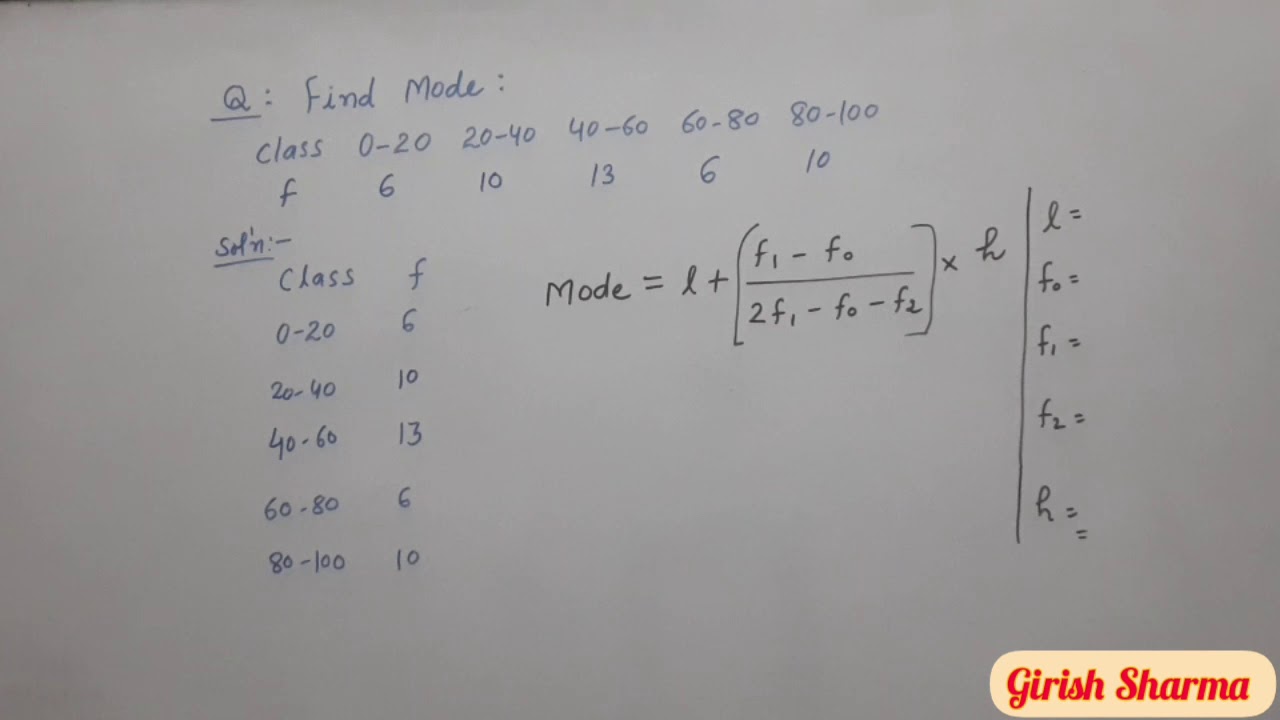 Q: Find Mode:
Class 0-20 20-40 40-60 60-80 80-100
f 6 10 13 6 10
Sol'n:-
Class f
0-20 6
20-40 10
40-60 13
60-80 6
80-100 10
Mode = l + [f₁ - f₀ / 2f₁ - f₀ - f₂] × h
l =
f₀ =
f₁ =
f₂ =
h =
=
Girish Sharma